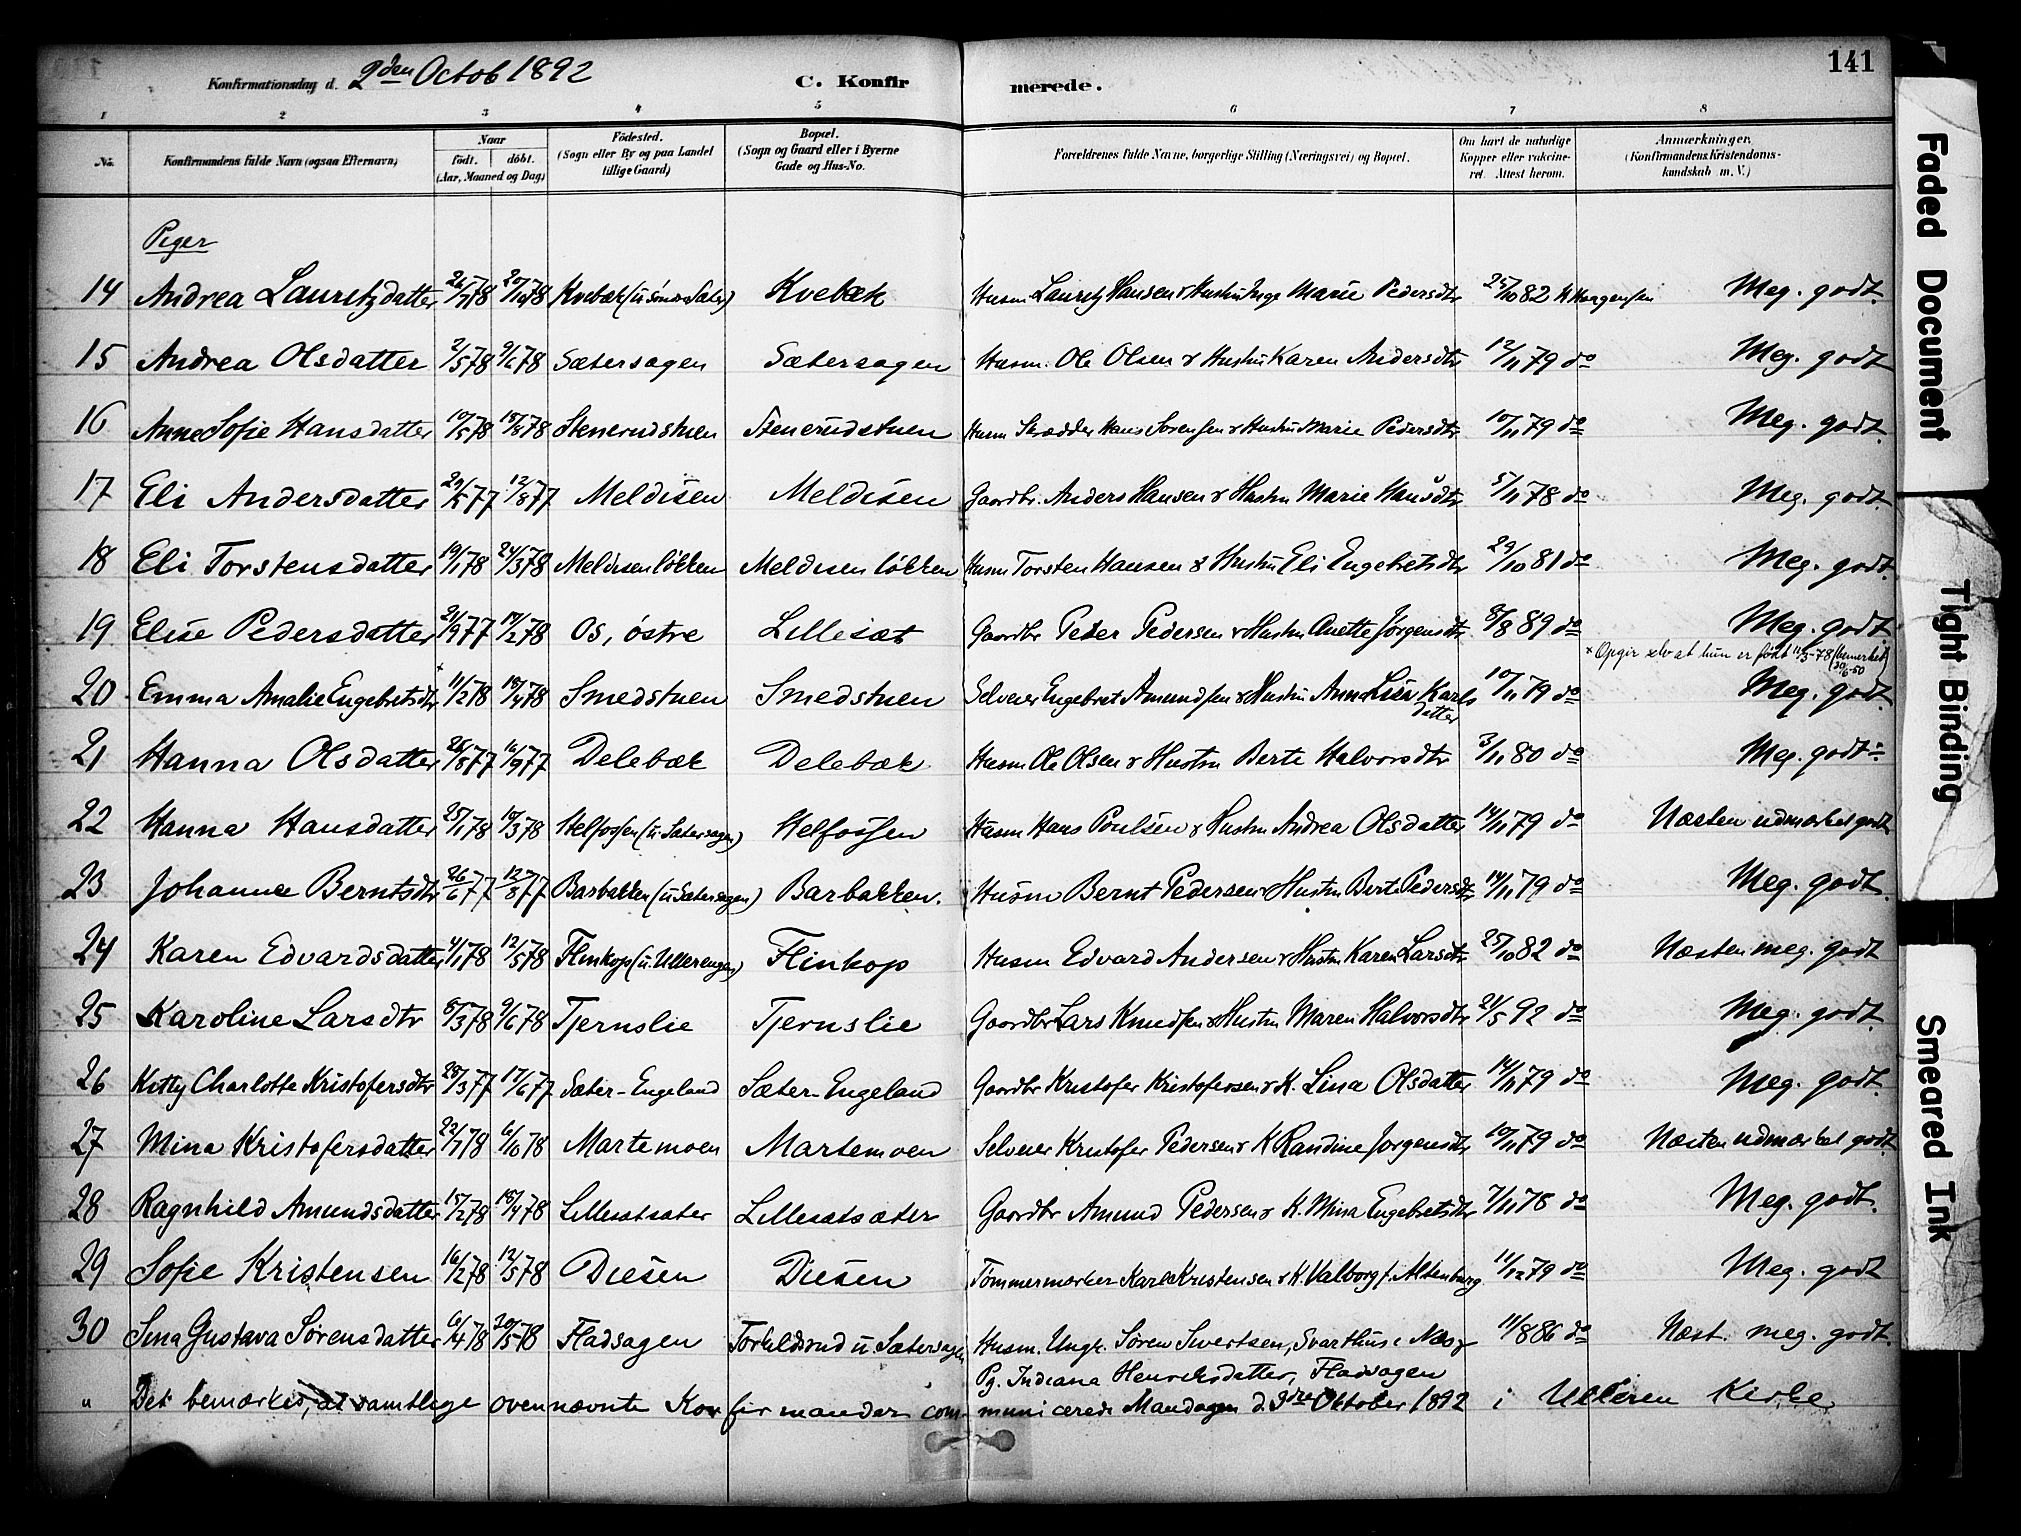 141
Konfirmationsdag d. 2den Octob 1892 C. Konfir merede.
1 2 3 4 5 6 7 8
No. Konfirmandens fulde Navn (ogsaa Efternavn) Naar født. døbt. (Aar, Maaned og Dag) Födested. (Sogn eller By og paa Landet tillige Gaard) Bopæl. (Sogn og Gaard eller i Byerne Gade og Hus-No. Forældrenes fulde Navne, borgerlige Stilling (Næringsvei) og Bopæl. Om havt de naturlige Kopper eller vakcineret. Attest herom. Anmærkninger. (Konfirmandens Kristendomskundskab m. V.)
Piger
14 Andrea Lauritzdatter 78 78 Kvebæk Kvebæk Husm Lauritz Hansen & Hustru Inge Marie Pedersdtr 25/10 82 Meg. godt.
15 Andrea Olsdatter 2/5 78 9/6 78 Sætersagen Sætersagen Husm. Ole Olsen & Hustru Karen Andersdtr 12/11 79 do Meg. godt
16 Anne Sofie Hansdatter 10/5 78 18/8 78 Stenerudstuen Stenerudstuen Husm Skrædder Hans Sørensen & Hustru Marie Pedersdtr 10/11 79 do Meg. godt.
17 Eli Andersdatter 77 12/8 77 Meldisen Meldisen Gaardbr. Anders Hansen & Hustru Marie Hansdtr 5/11 78 do Meg. godt.
18 Eli Torstensdatter 19/1 78 24/3 78 Meldisenløkken Meldisenløkken Husm Torsten Hansen & Hustru Eli Engebretsdtr 29/10 81 do Meg. godt.
19 Elise Pedersdatter 21/9 77 17/2 78 Os, østre Lillesæt Gaardbr Peder Pedersen & Hustru Anette Jørgensdtr 8/8 89 do Meg. godt
× Opgir selv at hun er født 11/3-78 (bemerket 20/6-50)
20 Emma Amalie Engebretsdtr × 11/2 78 18/4 78 Smedstuen Smedstuen Selveier Engebret Amundsen & Hustru Anne Lise Karlsdatter 10/11 79 do Meg. godt.
21 Hanna Olsdatter 26/8 77 16/9 77 Delebæk Delebæk Husm Ole Olsen & Hustru Berte Halvorsdtr 3/11 80 do Meg. godt
22 Hanna Hansdatter 25/1 78 10/3 78 Helfossen (u Sætersagen) Helfossen Husm Hans Poulsen & Hustru Andrea Olsdatter 14/11 79 do Næsten udmærket godt
23 Johanne Berntsdtr 26/6 77 12/8 77 Barbakken (u Sætersagen) Barbakken. Husm Bernt Pedersen & Hustru Berte Pedersdtr 14/11 79 do Meg. godt.
24 Karen Edvardsdatter 4/1 78 12/5 78 Flinkop (u. Ullerengen) Flinkop Husm Edvard Andersen & Hustru Karen Larsdtr 25/10 82 do Næsten meg. godt
25 Karoline Larsdtr 8/3 78 9/6 78 Tjernslie Tjernslie Gaardbr Lars Knudsen & Hustru Maren Halvorsdtr 21/5 92 do Meg. godt.
26 Kitty Charlotte Kristofersdtr 28/3 77 17/6 77 Sæter-Engeland Sæter-Engeland Gaardbr Kristofer Kristofersen & K. Lina Olsdatter 14/11 79 do Meg. godt.
27 Mina Kristofersdatter 22/7 78 6/10 78 Martemoen Martemoen Selveier Kristofer Pedersen & K Randine Jørgensdtr 10/11 79 do Næsten udmærket godt.
28 Ragnhild Amundsdatter 15/2 78 18/4 78 Lillesætsæter Lillesætsæter Gaardbr Amund Pedersen & K. Mina Engebretsdtr 7/11 78 do Meg. godt.
29 Sofie Kristensen 16/2 78 12/5 78 Diesen Diesen Tømmermærker Karl Kristensen & K. Valborg f. Altenburg 11/12 79 do Meg. godt
30 Sina Gustava Sørensdatter 6/4 78 20/5 78 Fladsagen Torkildsrud u Sætersagen Husm. Ungk. Søren Sivertsen, Svarthus i Næs & Pg. Indiana Henriksdatter, Fladsagen 11/8 86 do Næst. meg. godt.
" Det bemærkes, at samtlige ovennævnte Konfirmander communicerede Mandagen d. 3die Oktober 1892 i Ulleren Kirke
Faded Document
Tight Binding
Smeared Ink